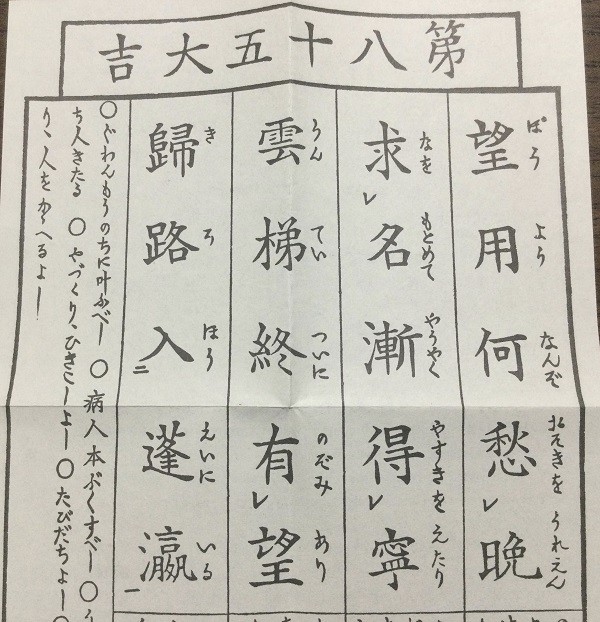 第八十五大吉
ぼう よう なんぞ おそきを うれえん
望用何愁レ晩
なを もとめて やうやく やすきを えたり
求レ名漸得レ寧
うん てい ついに のぞみ あり
雲梯終有レ望
き ろ ほう えいに いる
歸路入二蓬瀛一
〇ぐわんもうのちに叶ふべし 〇病人本ぶくすべし 〇う
ち人きたる 〇やづくり、ひきこしよし 〇たびだちよし 〇
り、人をかゝへるよし